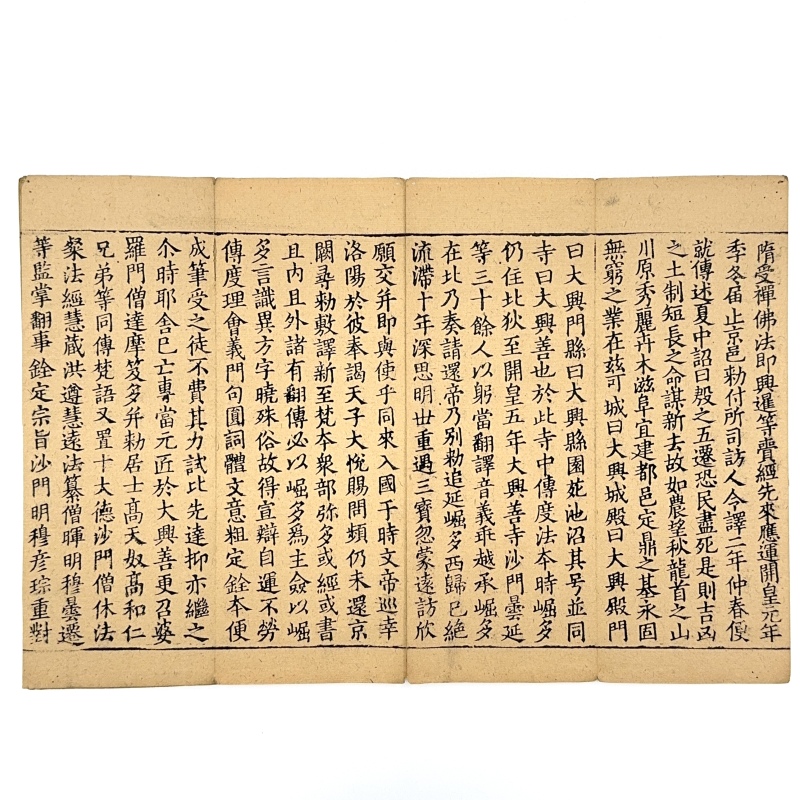 隋受禪佛法即興暹等賷經先來應運開皇元年
季冬届止京邑勑付所司訪人令譯二年仲春便
就傳述夏中詔曰殷之五遷恐民盡死是則吉凶
之土制短長之命謀新去故如農望秋龍首之山
川原秀麗卉木滋阜宜建都邑定鼎之基永固
無窮之業在兹可城曰大興城殿曰大興殿門
曰大興門縣曰大興縣園苑池沼其号並同
寺曰大興善也於此寺中傳度法本時崛多
仍住北狄至開皇五年大興善寺沙門曇延
等三十餘人以躬當翻譯音義乖越承崛多
在北乃奏請還帝乃别勑追延崛多西歸已絶
流滯十年深思明世重遇三寶忽蒙遠訪欣
願交并即與使乎同來入國于時文帝巡幸
洛陽於彼奉謁天子大恱賜問頻仍未還京
闕尋勑敷譯新至梵本衆部弥多或經或書
且内且外諸有翻傳必以崛多爲主僉以崛
多言識異方字曉殊俗故得宣辯自運不勞
傳度理會義門句圓詞體文意粗定銓本便
成筆受之徒不費其力試比先達抑亦繼之
尒時耶舍巳亡專當元匠於大興善更召婆
羅門僧達摩笈多并勑居士高天奴高和仁
兄弟等同傳梵語又置十大德沙門僧休法
粲法經慧藏洪遵慧遠法纂僧暉明穆曇遷
等監掌翻事銓定宗旨沙門明穆彦琮重對